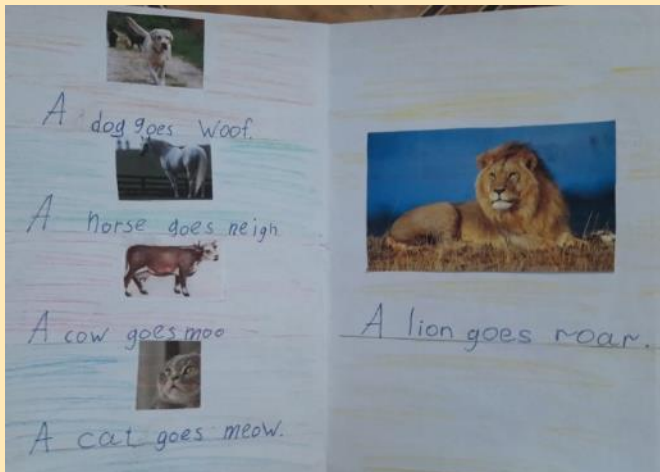 A dog goes woof.
A horse goes neigh.
A cow goes moo
A cat goes meow.
A lion goes roar.